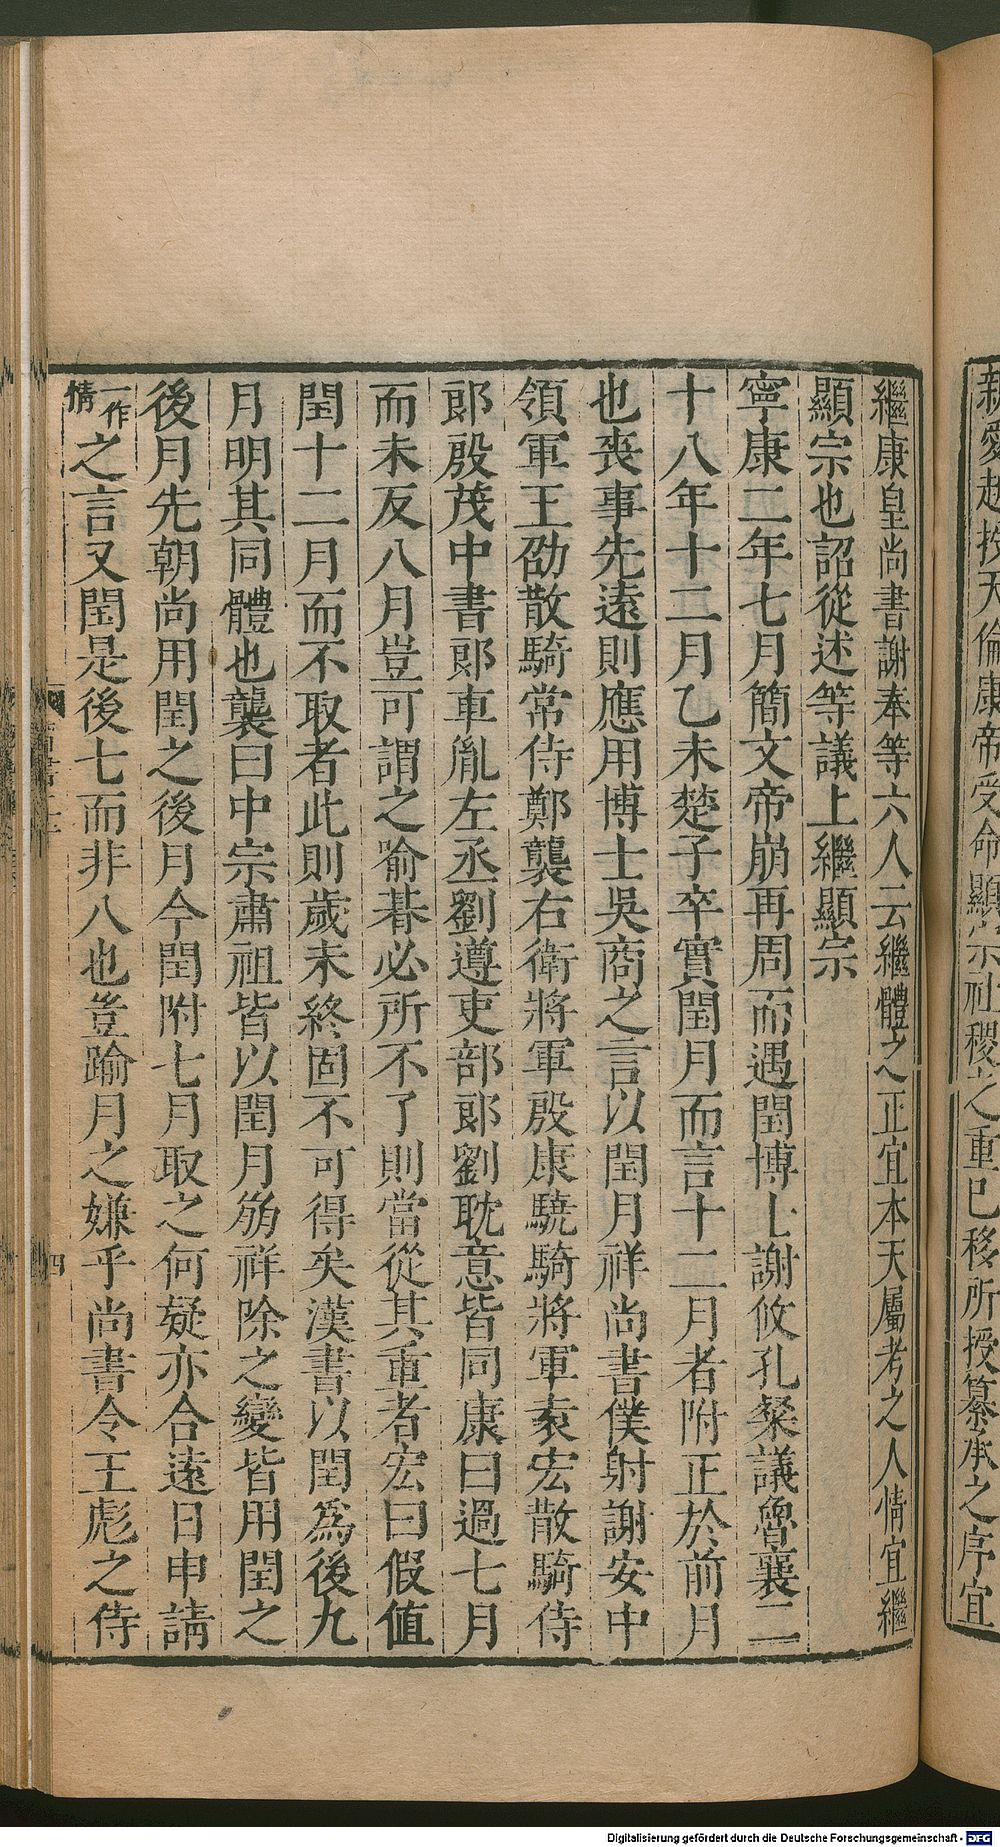 親愛越按天倫康帝受命顯宗社稷之重已移所授纂承之序宜
繼康皇尚書謝奉等六人云繼體之正宜本天屬考之人情宜繼
顯宗也詔從述等議上繼顯宗
寧康二年七月簡文帝崩再周而遇閏博士謝攸孔粲議魯襄二
十八年十二月乙未楚子卒實閏月而言十二月者附正於前月
也喪事先遠則應用博士吳商之言以閏月祥尚書僕射謝安中
領軍王劭散騎常侍鄭襲右衛將軍殷康驍騎將軍袁宏散騎侍
郎殷茂中書郎車胤左丞劉遵吏部郎劉耽意皆同康曰過七月
而未反八月豈可謂之喻朞必所不了則當從其重者宏曰假值
閏十二月而不取者此則歲未終固不可得矣漢書以閏爲後九
月明其同體也襲曰中宗肅祖皆以閏月崩祥除之變皆用閏之
後月先朝尚用閏之後月今閏附七月取之何疑亦合遠日申請
一作情之言又閏是後七而非八也豈踰月之嫌乎尚書令王彪之侍
四
Digitalisierung gefördert durch die Deutsche Forschungsgemeinschaft - DFG